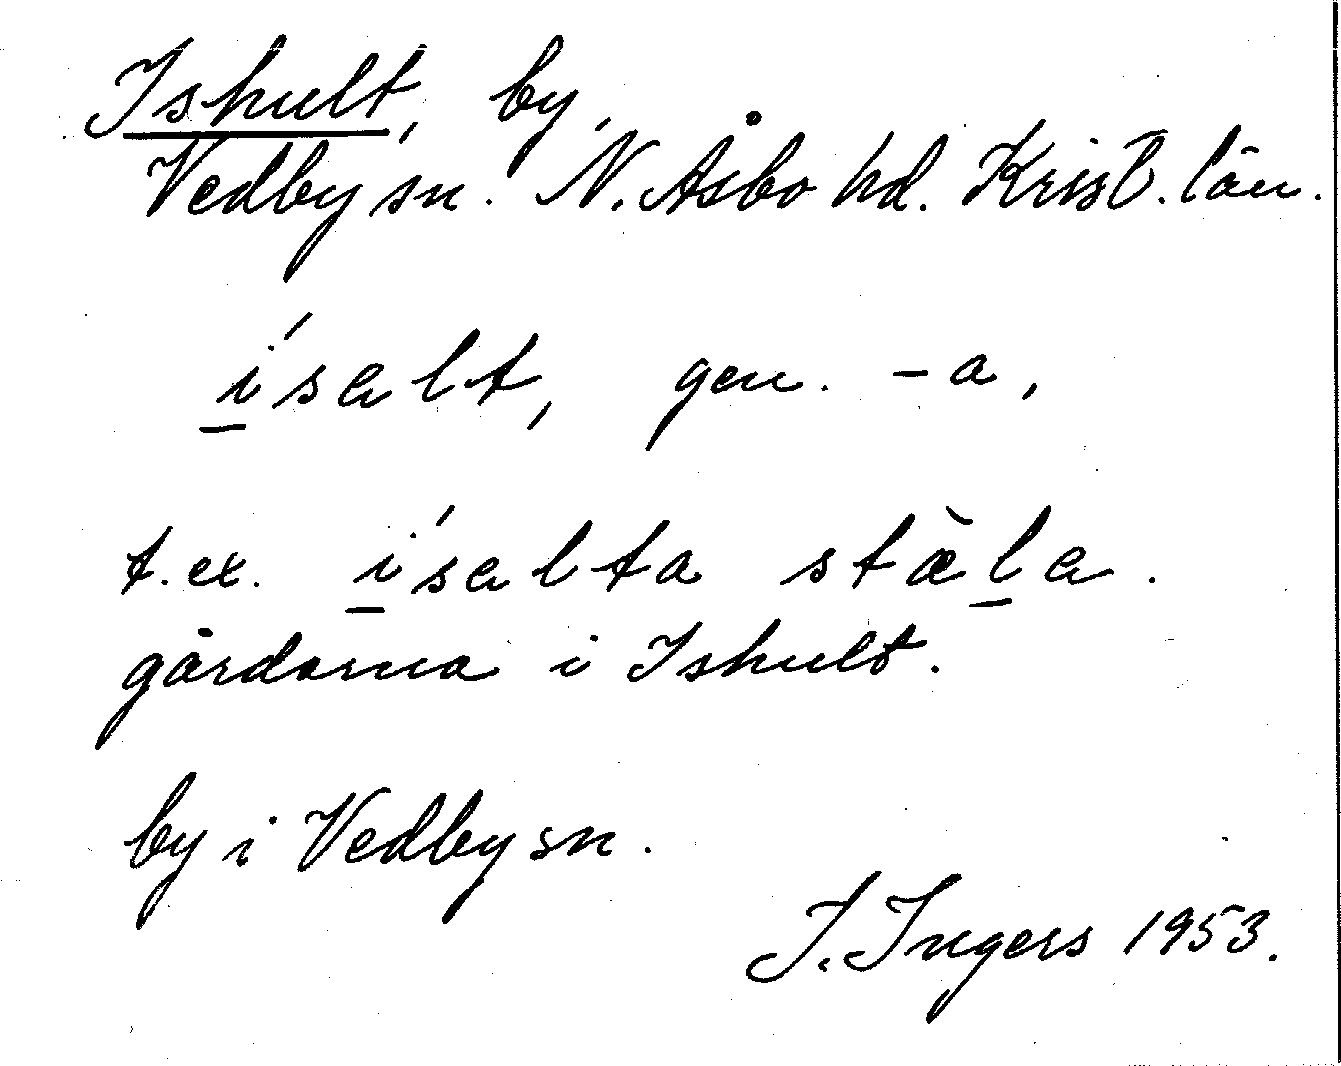 Ishult, by,
Vedby sn. N. Åsbo hd. Krist. län.
í̠salt, gen. -a,
t.ex. í̠salta stæ̀l̠a.
gårdarna i Ishult.
by i Vedby sn.
I. Ingers 1953.